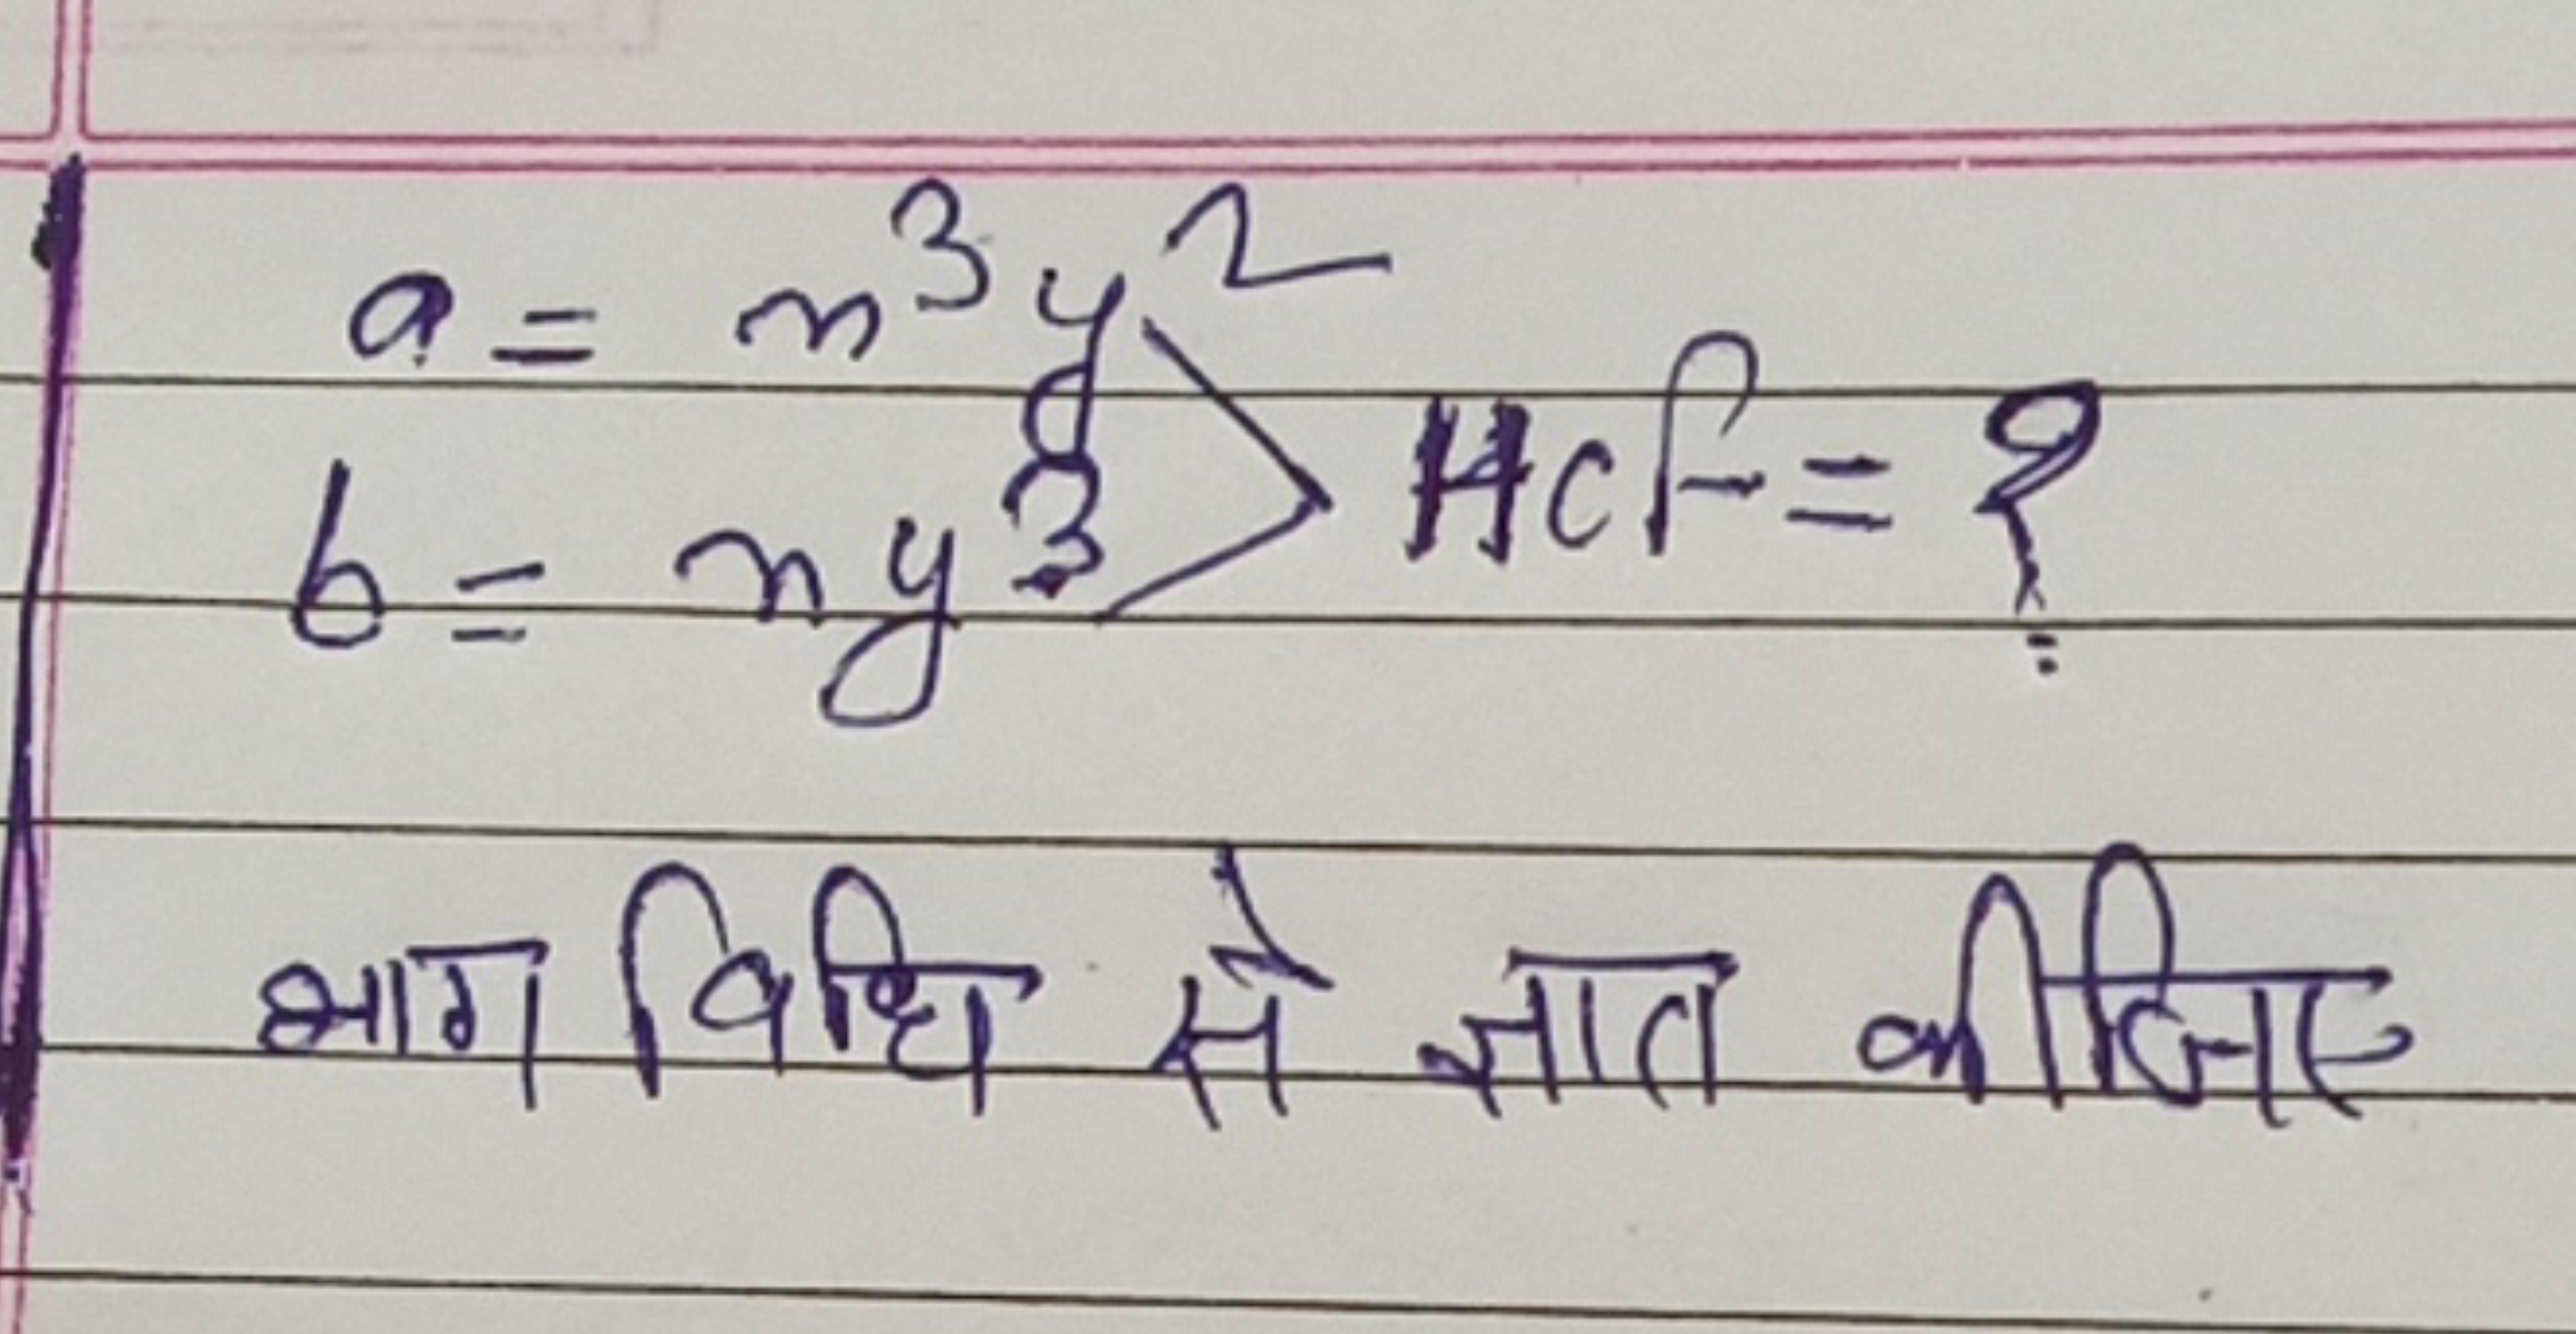 a = x³y²
b = xy³ > HCF = ?
भाग विधि से ज्ञात कीजिए